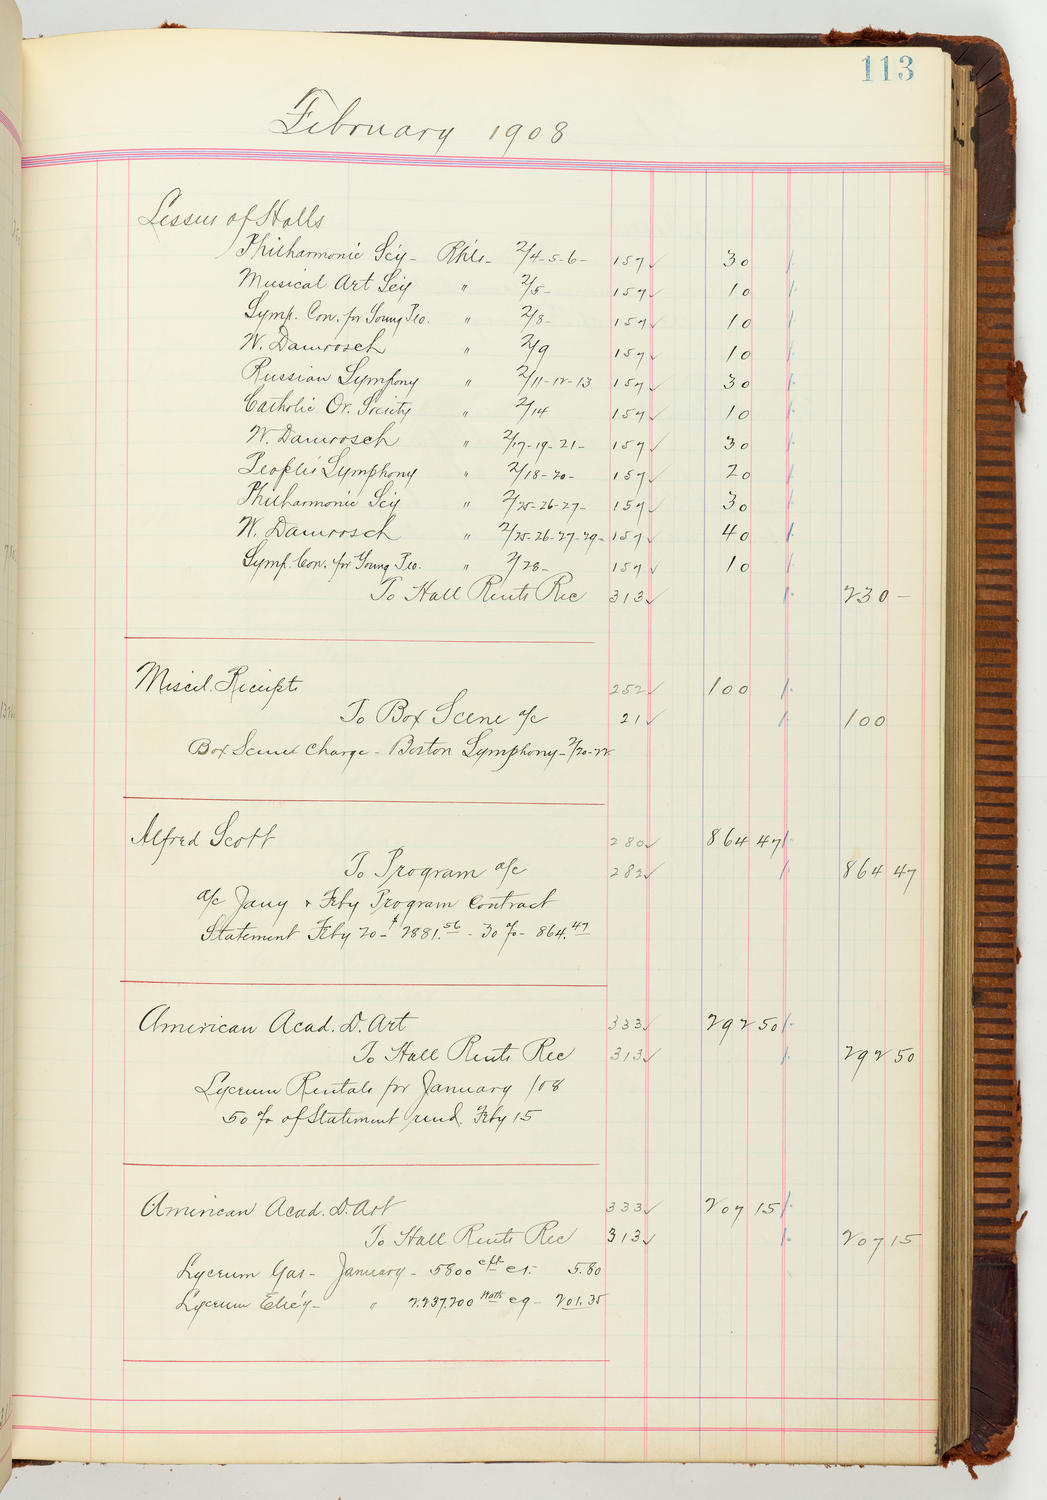 113
February 1908
Lessees of Halls
Philharmonic Soc'y - Rhls - 2/4-5-6- 157 ✓ 30
Musical Art Soc'y " 2/5- 157 ✓ 10
Symp. Con. for Young Peo. " 2/8- 157 ✓ 10
W. Damrosch " 2/9 157 ✓ 10
Russian Symphony " 2/11-12-13 157 ✓ 30
Catholic Or. Society " 2/14 157 ✓ 10
W. Damrosch " 2/17-19-21- 157 ✓ 30
People's Symphony " 2/18-20- 157 ✓ 20
Philharmonic Soc'y " 2/25-26-27- 157 ✓ 30
W. Damrosch " 2/25-26-27-29- 157 ✓ 40
Symp. Con. for Young Peo. " 2/28- 157 ✓ 10
To Hall Rents Rec 313 ✓ 230 -
Miscel. Receipts 252 ✓ 100
To Box Scene a/c 21 ✓ 100
Box Scene Charge - Boston Symphony - 2/20-22
Alfred Scott 280 ✓ 864 47
To Program a/c 282 ✓ 864 47
a/c Jany & Feby Program Contract
Statement Feby 20 - $2881.56 - 30% - 864.47
American Acad. D. Art 333 ✓ 292 50
To Hall Rents Rec 313 ✓ 292 50
Lyceum Rentals for January /08
50% of Statement rend. Feby 15
American Acad. D. Art 333 ✓ 207 15
To Hall Rents Rec 313 ✓ 207 15
Lyceum Gas - January - 5800 cft - 5.80
Lyceum Elec'y - " 2.237.200 Watts - 201.35